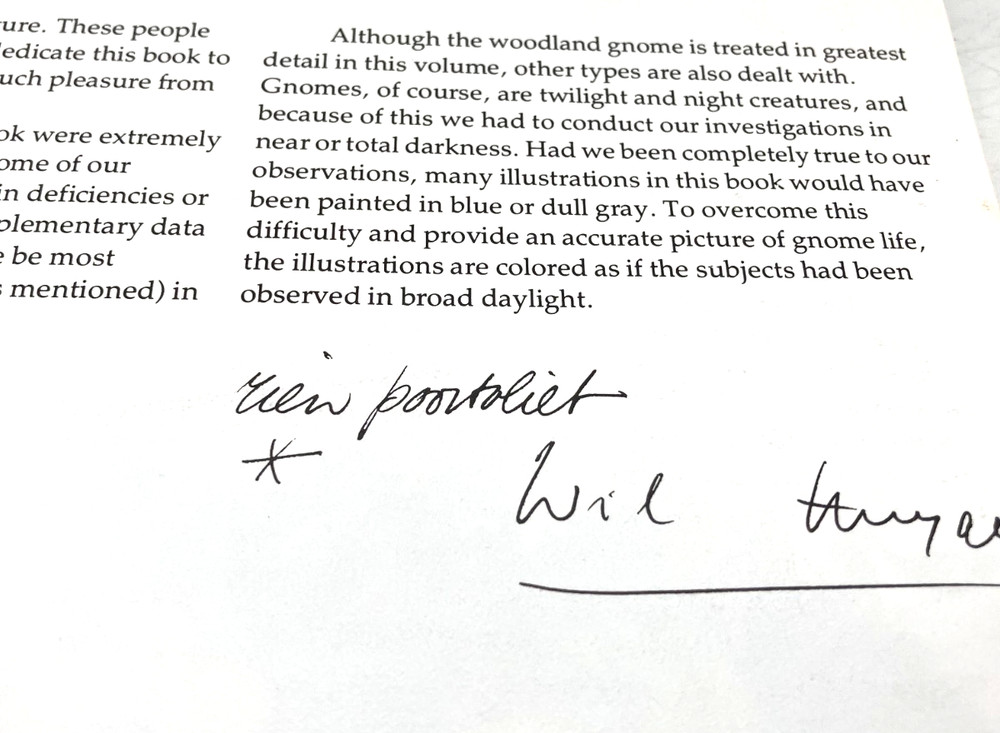 ure. These people
edicate this book to
uch pleasure from
ok were extremely
ome of our
in deficiencies or
plementary data
e be most
s mentioned) in
Although the woodland gnome is treated in greatest
detail in this volume, other types are also dealt with.
Gnomes, of course, are twilight and night creatures, and
because of this we had to conduct our investigations in
near or total darkness. Had we been completely true to our
observations, many illustrations in this book would have
been painted in blue or dull gray. To overcome this
difficulty and provide an accurate picture of gnome life,
the illustrations are colored as if the subjects had been
observed in broad daylight.
rien poortvliet
*
Wil Huyge